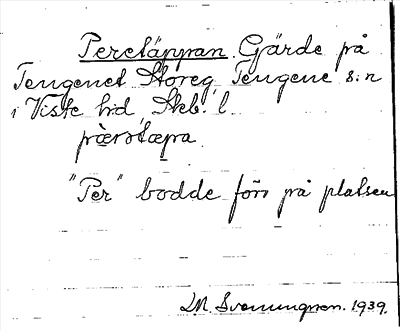 Peretäppan. Gärde på
Tengenet Storeg, Tengene s:n
i Viste hd, Skb. l.
pær⁠ətæpa
"Per" bodde förr på platsen
M. Svenungsson. 1939.